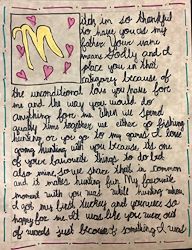 M
itch im so thankful
to have you as my
father. Your name
means Godly and I
place you in that
category because of
the unconditional love you have for
me and the way you would do
anything for me. When we spend
quality time together we either go fishing
hunting or you go to my games. I love
going hunting with you because its one
of your favourite things to do but
also mine so we share that in common
and it makes hunting fun. My favourite
moment with you was while hunting when
I got my first turkey and you were so
happy for me. It was like you were out
of words just because something I was